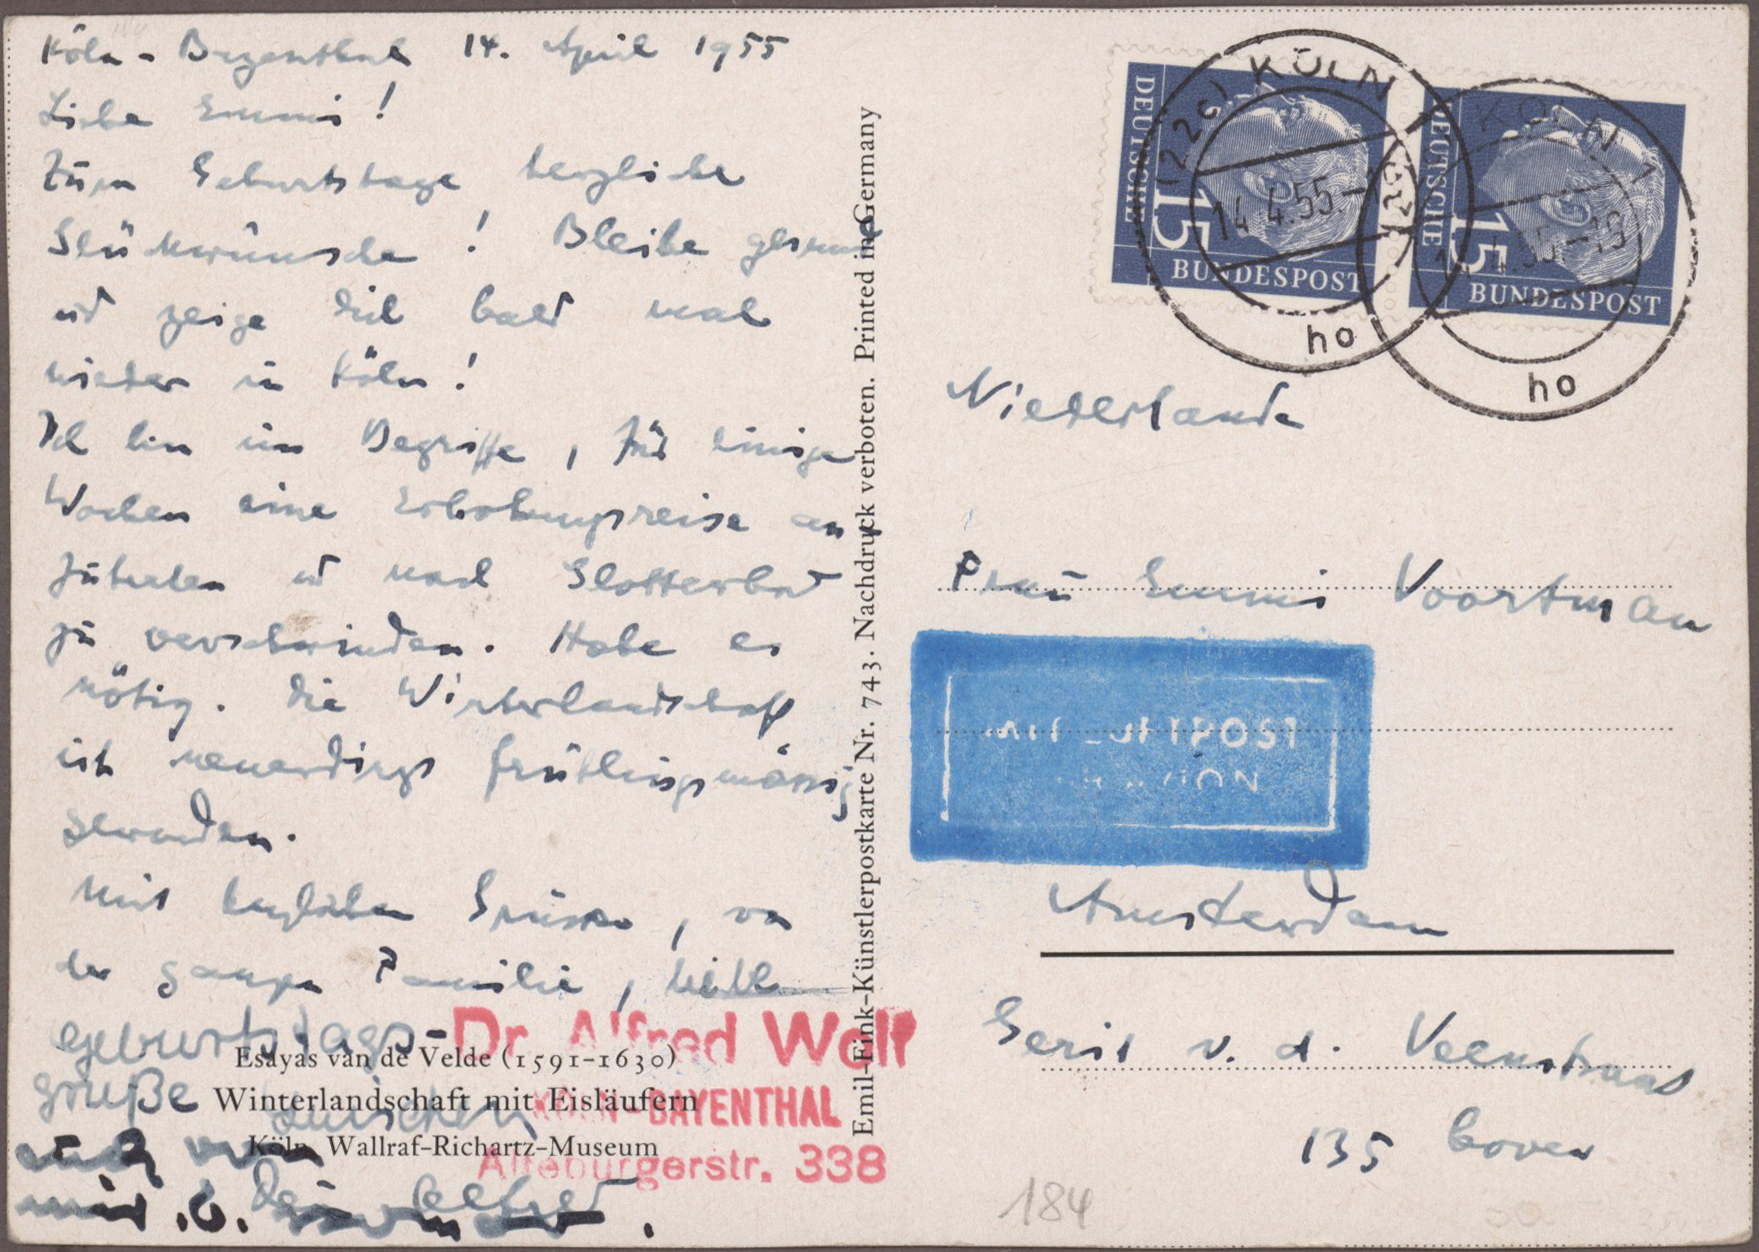 Köln-Bayenthal 14. April 1955
Liebe Emmi!
Zum Geburtstage herzliche
Glückwünsche! Bleibe gesund
und zeige dich bald mal
wieder in Köln!
Ich bin im Begriffe, für einige
Wochen eine Erholungsreise an
zutreten und nach Glotterbad
zu verschwinden. Habe es
nötig. Die Winterlandschaft
ist neuerdings frühlingsmässig
geworden.
Mit herzlichen Grüssen, von
der ganzen Familie,
geburtstags-
grüße
auch von
Dein Alfred
Dr. Alfred Wolf
KÖLN-BAYENTHAL
Alteburgerstr. 338
Esayas van de Velde (1591-1630)
Winterlandschaft mit Eisläufern
Köln, Wallraf-Richartz-Museum
Emil-Fink-Künstlerpostkarte Nr. 743. Nachdruck verboten. Printed in Germany
DEUTSCHE
15
BUNDESPOST
DEUTSCHE
15
BUNDESPOST
(22c) KÖLN 1
14.4.55.-
ho
KÖLN 1
ho
Niederlande
Frau Emmi Voortman
MIT LUFTPOST
PAR AVION
Amsterdam
Gerit v. d. Veenstraat
135 boven
184